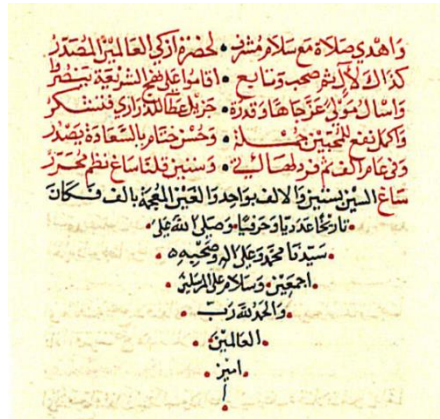 واهدي صلاة مع سلام مشرف • لحضرة ازكي العالمين المصدر
كذاك لآل ثم صحب وتابع • اقاموا على نهج الشريعة
واسال مولى عز جاها وقدرة • جزيل عطا للدراري
واكمل نفع للمحبين جملة • وحسن ختام بالسعادة يصدر
وفي عام الف ثم فرد لهـ • وسنين قلنا ساغ نظم محرر
ساغ السين لسنين والالف بواحد والغين المعجمة بالف فكان
تاريخا عدديا وحرفيا وصلى الله على
سيدنا محمد وعلى اله وصحبه
اجمعين وسلام على المرسلين
والحمد لله رب
العالمين
امين
ا